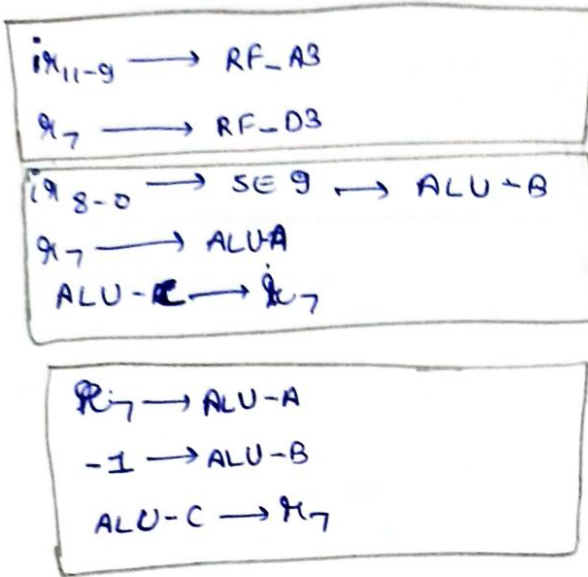 ir₁₁₋₉ → RF_A3
r₇ → RF_D3
ir₈₋₀ → SE9 → ALU-B
r₇ → ALU-A
ALU-C → r₇
R₇ → ALU-A
-1 → ALU-B
ALU-C → r₇